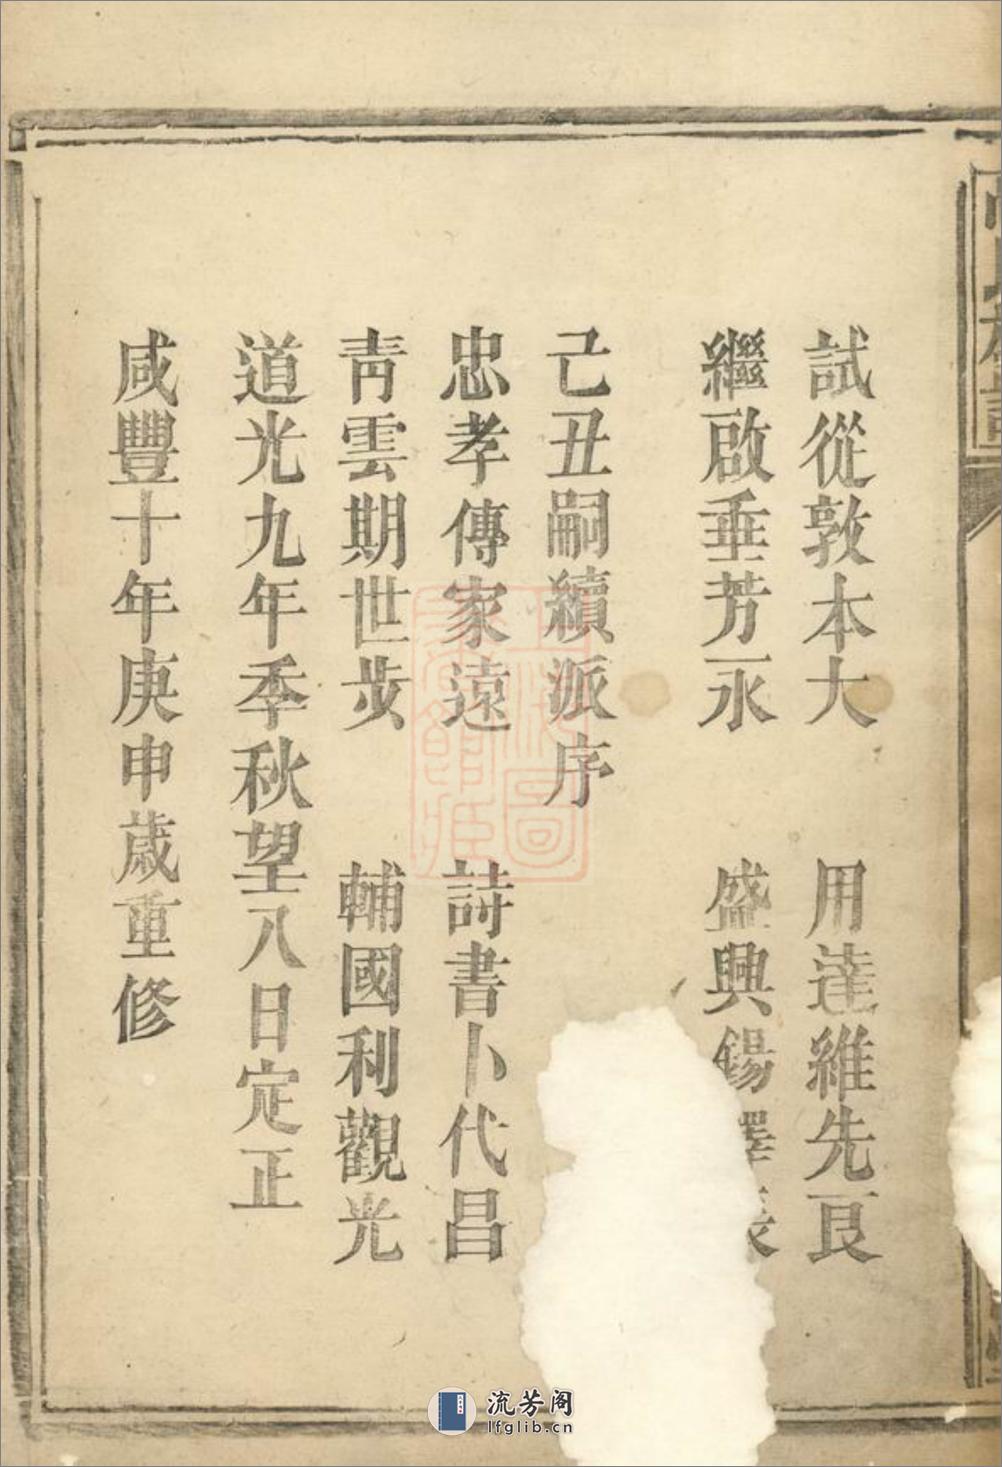 試從敦本大 用達維先良
繼啟垂芳永 盛興錫澤長
己丑嗣續派序
忠孝傳家遠 詩書卜代昌
靑雲期世步 輔國利觀光
道光九年季秋望八日定正
咸豐十年庚申歲重修
流芳阁
lfglib.cn